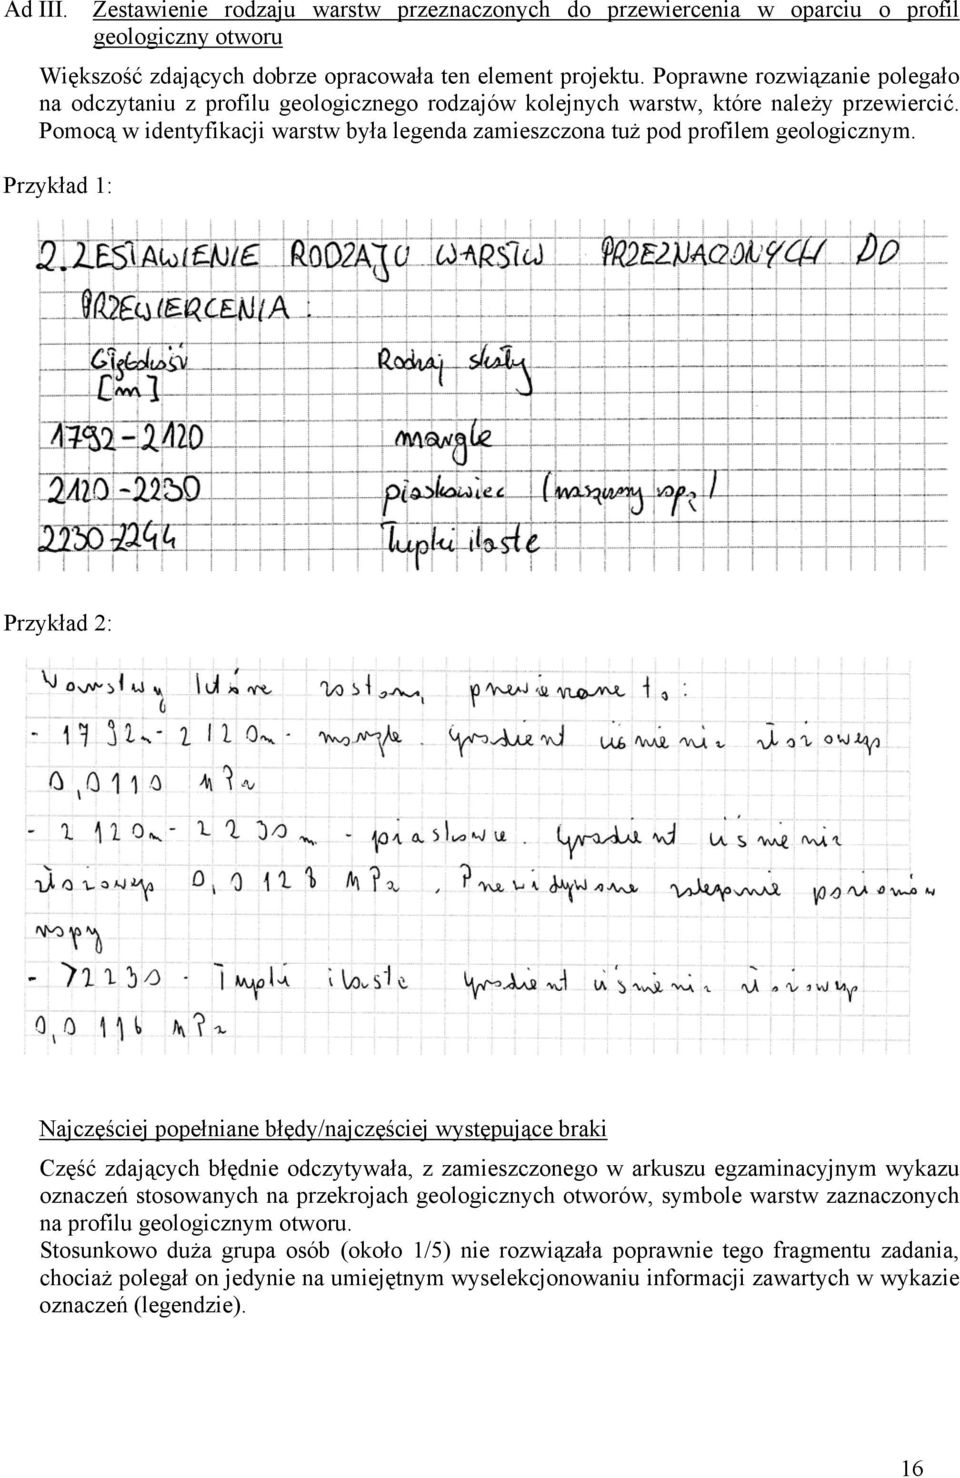 Ad III. Zestawienie rodzaju warstw przeznaczonych do przewiercenia w oparciu o profil
geologiczny otworu
Większość zdających dobrze opracowała ten element projektu. Poprawne rozwiązanie polegało
na odczytaniu z profilu geologicznego rodzajów kolejnych warstw, które należy przewiercić.
Pomocą w identyfikacji warstw była legenda zamieszczona tuż pod profilem geologicznym.
Przykład 1:
2. ZESTAWIENIE RODZAJU WARSTW PRZEZNACZONYCH DO
PRZEWIERCENIA :
Głębokość Rodzaj skały
[m]
1792-2120 margle
2120-2230 piaskowiec (nasączony ropą)
2230-2244 Łupki ilaste
Przykład 2:
Warstwy które zostaną przewiercane to:
- 1792m - 2120m - margle. Gradient ciśnienia złożowego
0,0110 MPa
- 2120m - 2230m - piaskowce. Gradient ciśnienia
złożowego 0,0128 MPa, Przewidywane zaleganie poziomów
ropy
- >2230 - Łupki ilaste gradient ciśnienia złożowego
0,0116 MPa
Najczęściej popełniane błędy/najczęściej występujące braki
Część zdających błędnie odczytywała, z zamieszczonego w arkuszu egzaminacyjnym wykazu
oznaczeń stosowanych na przekrojach geologicznych otworów, symbole warstw zaznaczonych
na profilu geologicznym otworu.
Stosunkowo duża grupa osób (około 1/5) nie rozwiązała poprawnie tego fragmentu zadania,
chociaż polegał on jedynie na umiejętnym wyselekcjonowaniu informacji zawartych w wykazie
oznaczeń (legendzie).
16